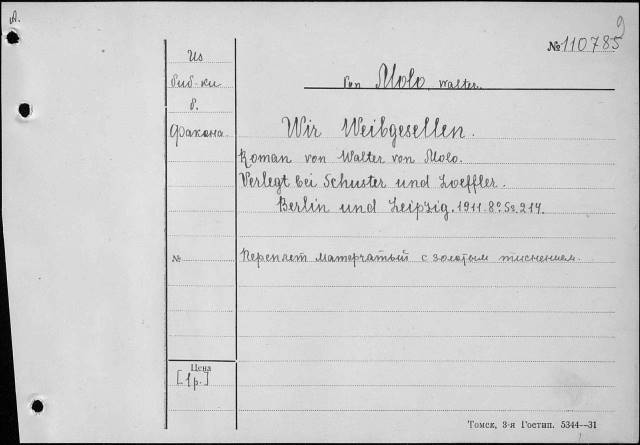 А.
9
№ 110785
Из
биб-ки
в.
Факона.
von Molo, Walter.
Wir Weibgesellen.
Roman von Walter von Molo.
Verlegt bei Schuster und Loeffler.
Berlin und Leipzig. 1911. 8º. Ss. 217.
№
Переплет матерчатый с золотым тиснением.
Цена
[1р.]
Томск, 3-я Гостип. 5344—31